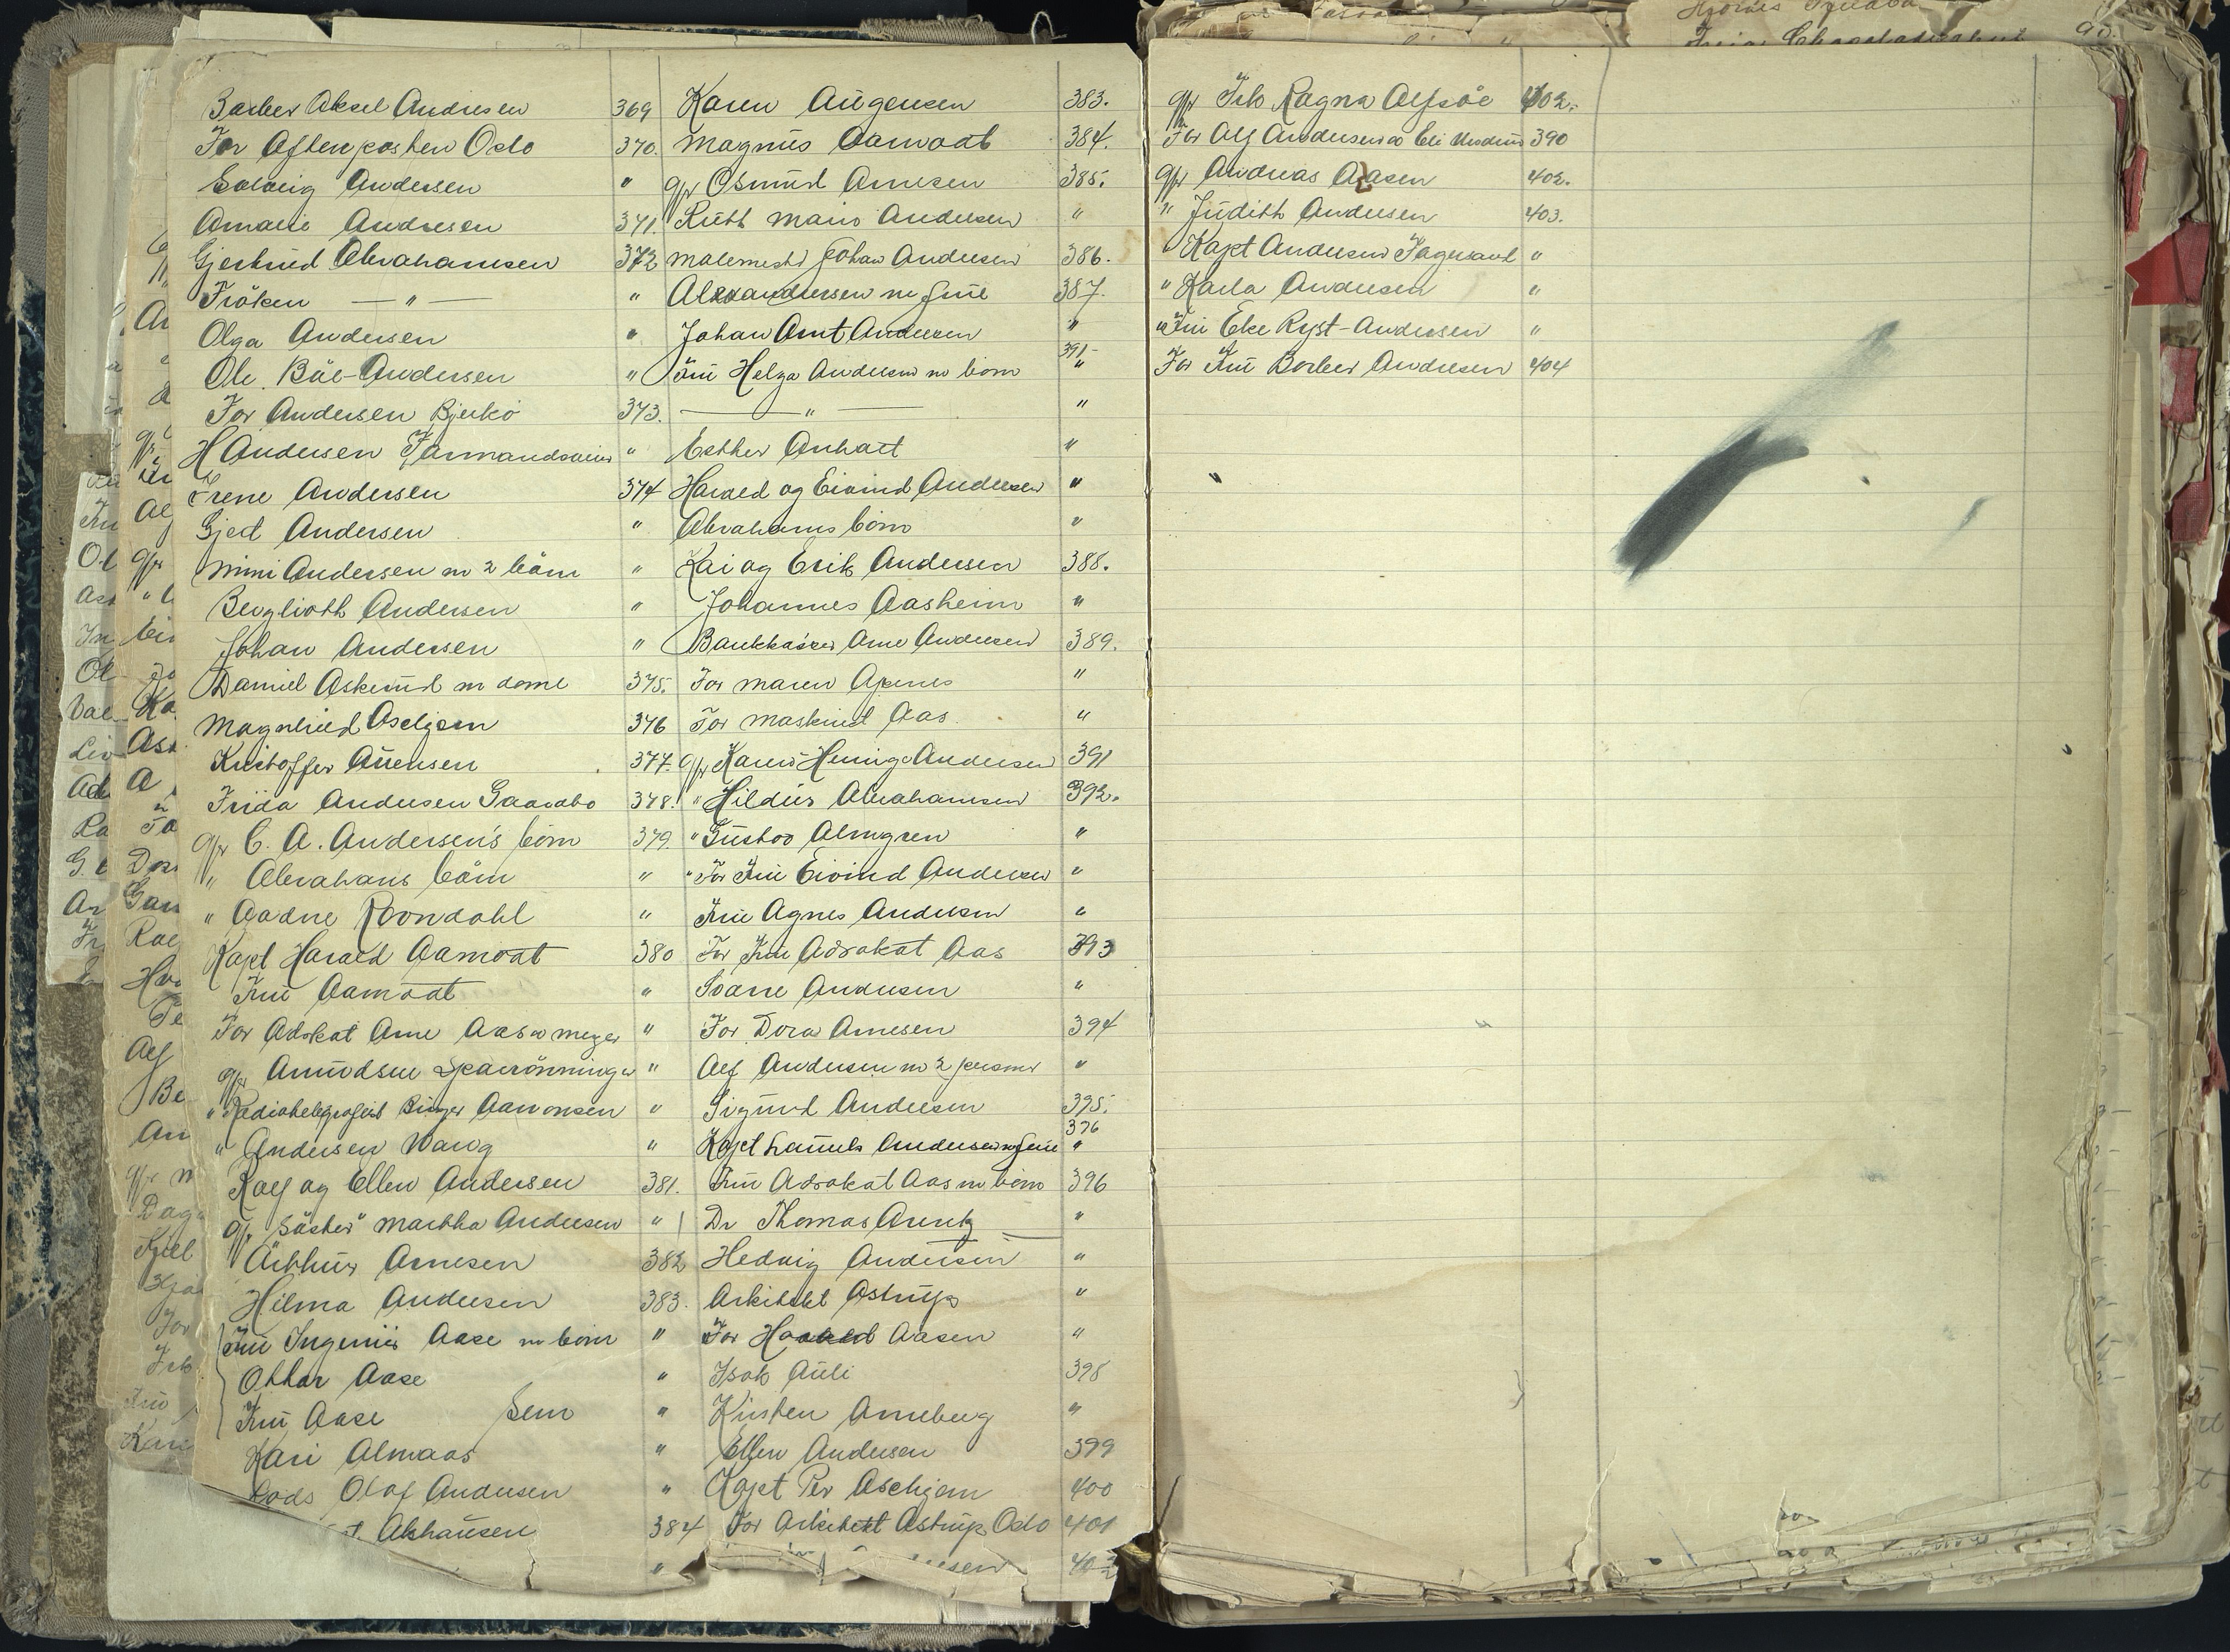 Barber Aksel Andresen 369
For Aftenposten Oslo 370.
Solveig Andersen "
Amalie Andresen 371.
Gjertrud Abrahamsen 372
Fröken — " — "
Olga Andersen "
Ole Båe-Andersen "
For Andersen Bjerkö 373.
H Andersen Farmandsveien "
Irene Andersen 374
Gjert Andersen "
Mimi Andersen m 2 börn "
Berglioth Andersen "
Johan Andersen "
Daniel Askerud m dame 375.
Magnhild Aschjem 376
Kristoffer Auensen 377.
Frida Andersen Gaarabo 378.
gpr C. A. Andersen's börn 379.
" Abrahams börn "
" Aadne Rondahl "
Kapt Harald Aamodt 380
Fru Aamodt "
For Advokat Arne Aas "
gpr Amundsen "
" Radiotelegrafist Birger Aaronsen "
" Andersen Wang "
Ralf og Ellen Andersen 381.
gpr "Söster" Martha Andersen "
Arthur Arnesen 382
Hilma Andersen 383.
Fru Ingeniör Aase m börn "
Ottar Aase "
Fru Aase Sem "
Kari Almaas "
Lods Olaf Andersen "
Akhausen 384
"
Karen Augensen 383.
Magnus Aamodt 384.
gpr Osmund Arnesen 385.
Ruth Marie Andersen "
Malermestr Johan Andersen 386.
Alexandersen m frue 387.
Johan Arnt Andersen "
391-
Fru Helga Andersen m börn "
— " — "
Esther Anhalt "
Harald og Eivind Andersen "
Abrahams börn "
Kai og Erik Andersen 388.
Johannes Aasheim "
Bankkasser Arne Andersen 389.
For Maren Apenes "
For Maskinist Aas "
gpr Karen Henny Andersen 391
" Hildur Abrahamsen 392.
" Gustav Almgren "
" For Fru Eivind Andersen "
Fru Agnes Andersen "
For Fru Advokat Aas 393
Svarre Andersen "
For Dora Arnesen 394
Alf Andersen m 2 personer "
Sigurd Andersen 395.
376
Kapt Lauels Andersen m frue "
Fru Advokat Aas m börn 396
Dr Thomas Arentz "
Hedvig Andersen "
Arkitekt Astrup "
For Harald Aasen "
Isak Auli 398
Kirsten Arneberg "
Ellen Andersen 399
Kapt Per Aschjem 400
For Arkitekt Astrup Oslo 401
402
gpr Frk Ragna Alfsöe 402.
For Alf Andersen 390
gpr Andreas Aasen 402.
" Judith Andersen 403.
" Kapt Andersen Fagersand "
" Karla Andersen "
" Fru Else Ryst-Andersen "
For Fru Barber Andresen 404
"